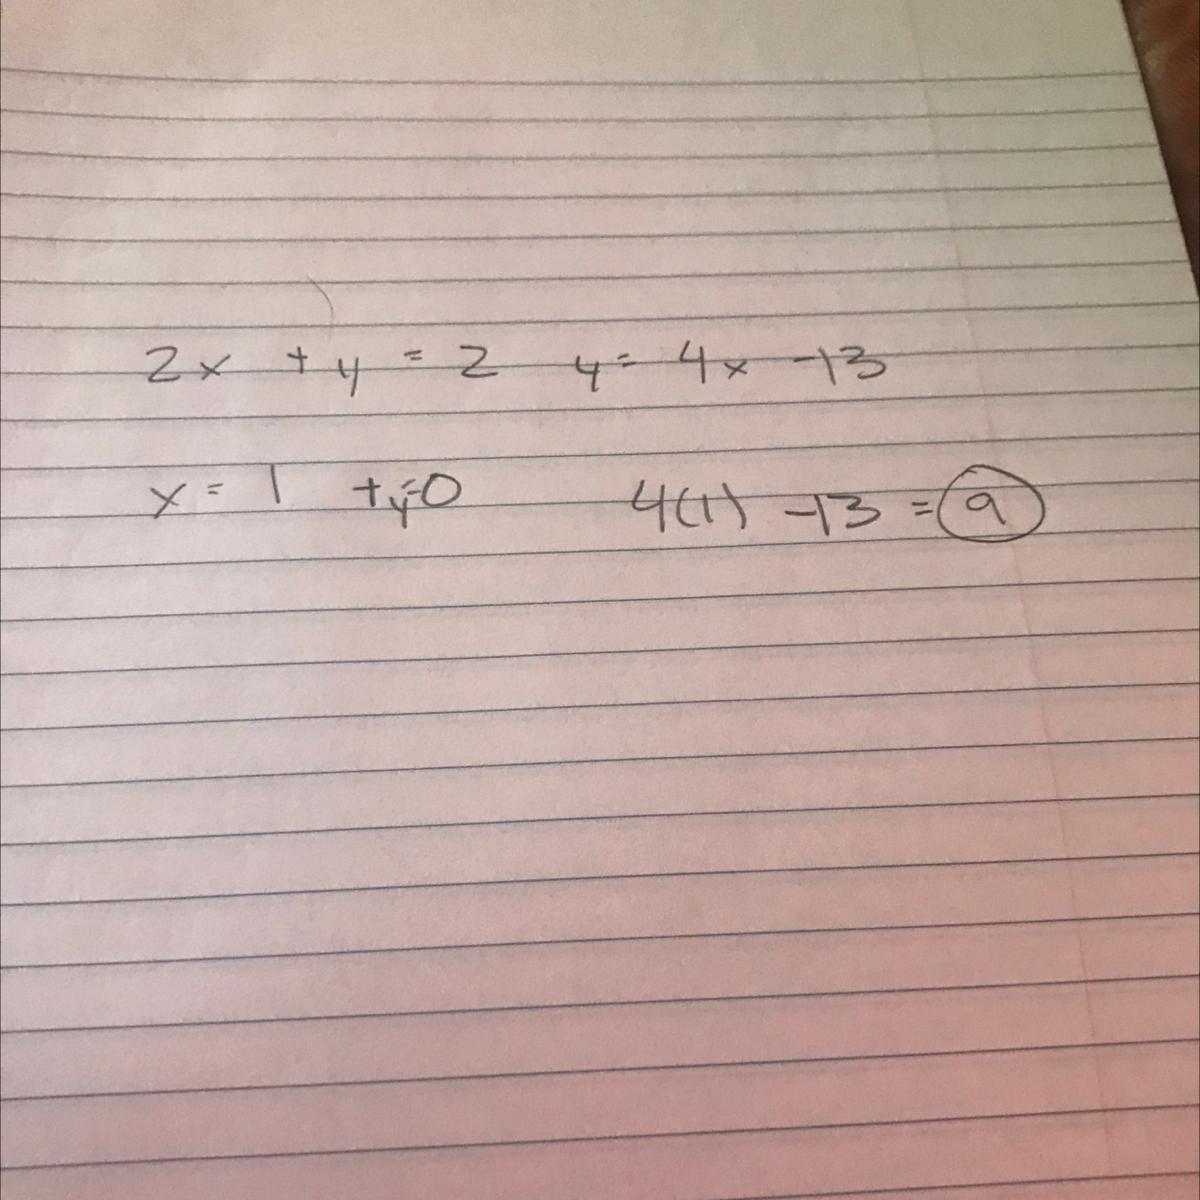 2x + y = 2 y = 4x - 13
x = 1 + y=0 4(1) - 13 = 9